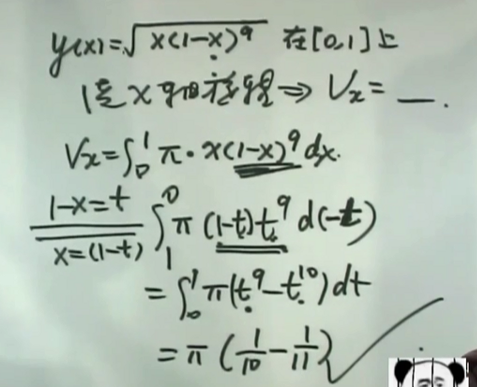 y(x)=√x(1-x)⁹ 在[0,1]上
绕x轴旋转⇒Vx=__.
Vx=∫₀¹π·x(1-x)⁹dx.
1-x=t
x=(1-t)
∫₁⁰π(1-t)t⁹d(-t)
=∫₀¹π(t⁹-t¹⁰)dt
=π(1/10-1/11)